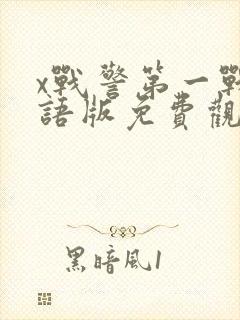 x戰警第一戰
語版免費觀
黑暗風1